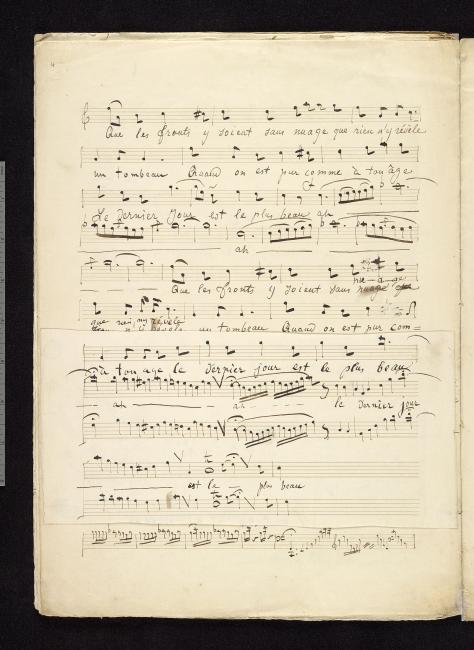 Que les fronts y soient sans nuage que rien n'y révèle
un tombeau Quand on est pur comme à ton âge
Le Dernier Jour est le plus beau ah
ah
nu-a-ge
Que les fronts y soient sans nuage que
que rien n'y révèle
un tombeau Quand on est pur com=
à ton age le Dernier jour est le plus beau
ah ah le Dernier jour
est le plus beau